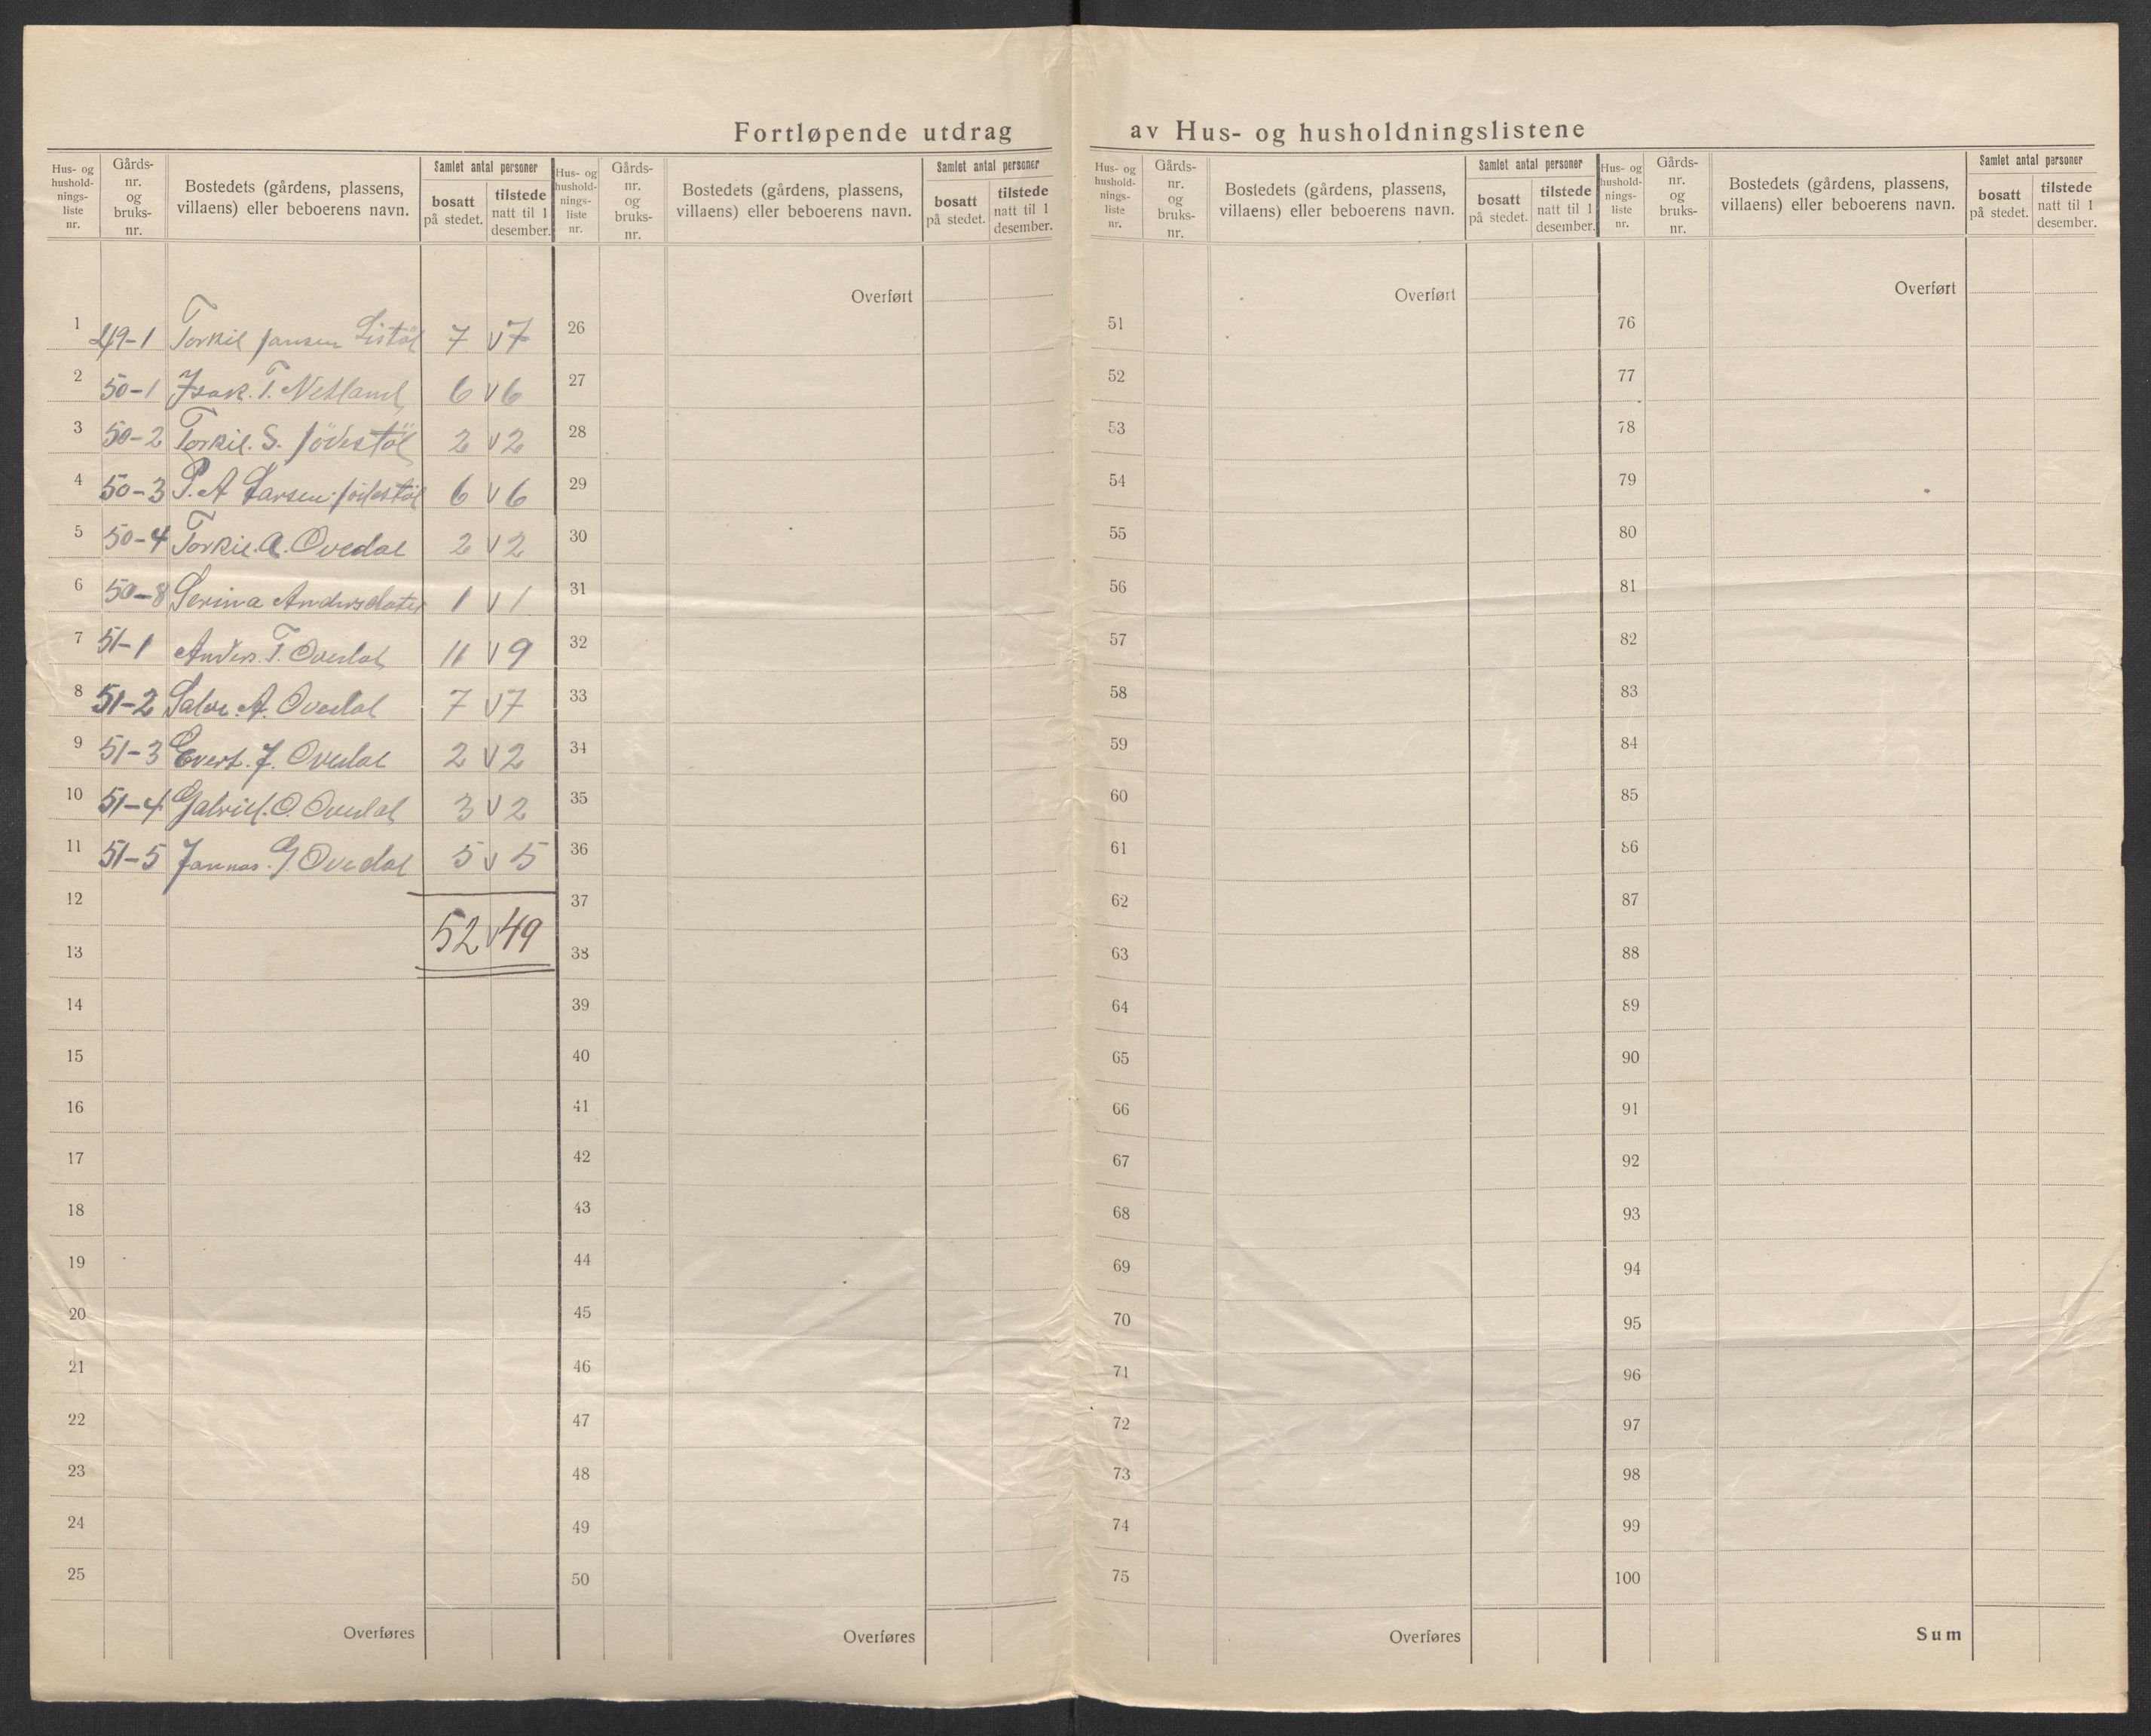 Fortløpende utdrag av Hus- og husholdningslistene
Hus- og hushold-nings-liste nr. Gårds-nr. og bruks-nr. Bostedets (gårdens, plassens, villaens) eller beboerens navn. Samlet antal personer bosatt på stedet. tilstede natt til 1 desember.
1 49-1 Torkil Jansen Listøl 7 v 7
2 50-1 Isak. T. Netland 6 v 6
3 50-2 Torkil. S. Jödestöl 2 v 2
4 50-3 P. A Larsen Jödestöl 6 v 6
5 50-4 Torkil. A. Ovedal 2 v 2
6 50-8 Serina Andersdater 1 v 1
7 51-1 Anders. T. Ovedal 11 v 9
8 51-2 Salve. A. Ovedal 7 v 7
9 51-3 Evert. J. Ovedal 2 v 2
10 51-4 Gabriel. O. Ovedal 3 v 2
11 51-5 Jannas. G Ovedal 5 v 5
12
52 v 49
13
14
15
16
17
18
19
20
21
22
23
24
25
Overføres
Hus- og hushold-nings-liste nr. Gårds-nr. og bruks-nr. Bostedets (gårdens, plassens, villaens) eller beboerens navn. Samlet antal personer bosatt på stedet. tilstede natt til 1 desember.
Overført
26
27
28
29
30
31
32
33
34
35
36
37
38
39
40
41
42
43
44
45
46
47
48
49
50
Overføres
Hus- og hushold-nings-liste nr. Gårds-nr. og bruks-nr. Bostedets (gårdens, plassens, villaens) eller beboerens navn. Samlet antal personer bosatt på stedet. tilstede natt til 1 desember.
Overført
51
52
53
54
55
56
57
58
59
60
61
62
63
64
65
66
67
68
69
70
71
72
73
74
75
Overføres
Hus- og hushold-nings-liste nr. Gårds-nr. og bruks-nr. Bostedets (gårdens, plassens, villaens) eller beboerens navn. Samlet antal personer bosatt på stedet. tilstede natt til 1 desember.
Overført
76
77
78
79
80
81
82
83
84
85
86
87
88
89
90
91
92
93
94
95
96
97
98
99
100
Sum